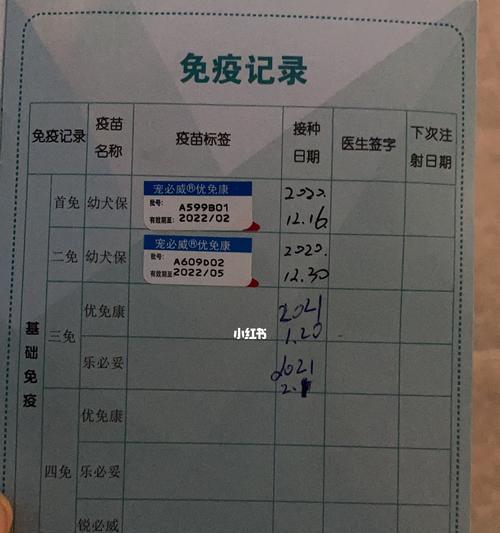 免疫记录
免疫记录 疫苗名称 疫苗标签 接种日期 医生签字 下次注射日期
基础免疫
首免 幼犬保 宠必威®优免康 2020.
批号: A599B01
有效期至: 2022/02 12.16
二免 幼犬保 宠必威®优免康 2020.
批号: A609D02
有效期至 2022/05 12.30
三免 优免康 2021
1.20
小红书
乐必妥 2021
2.
四免 优免康
乐必妥
锐必威